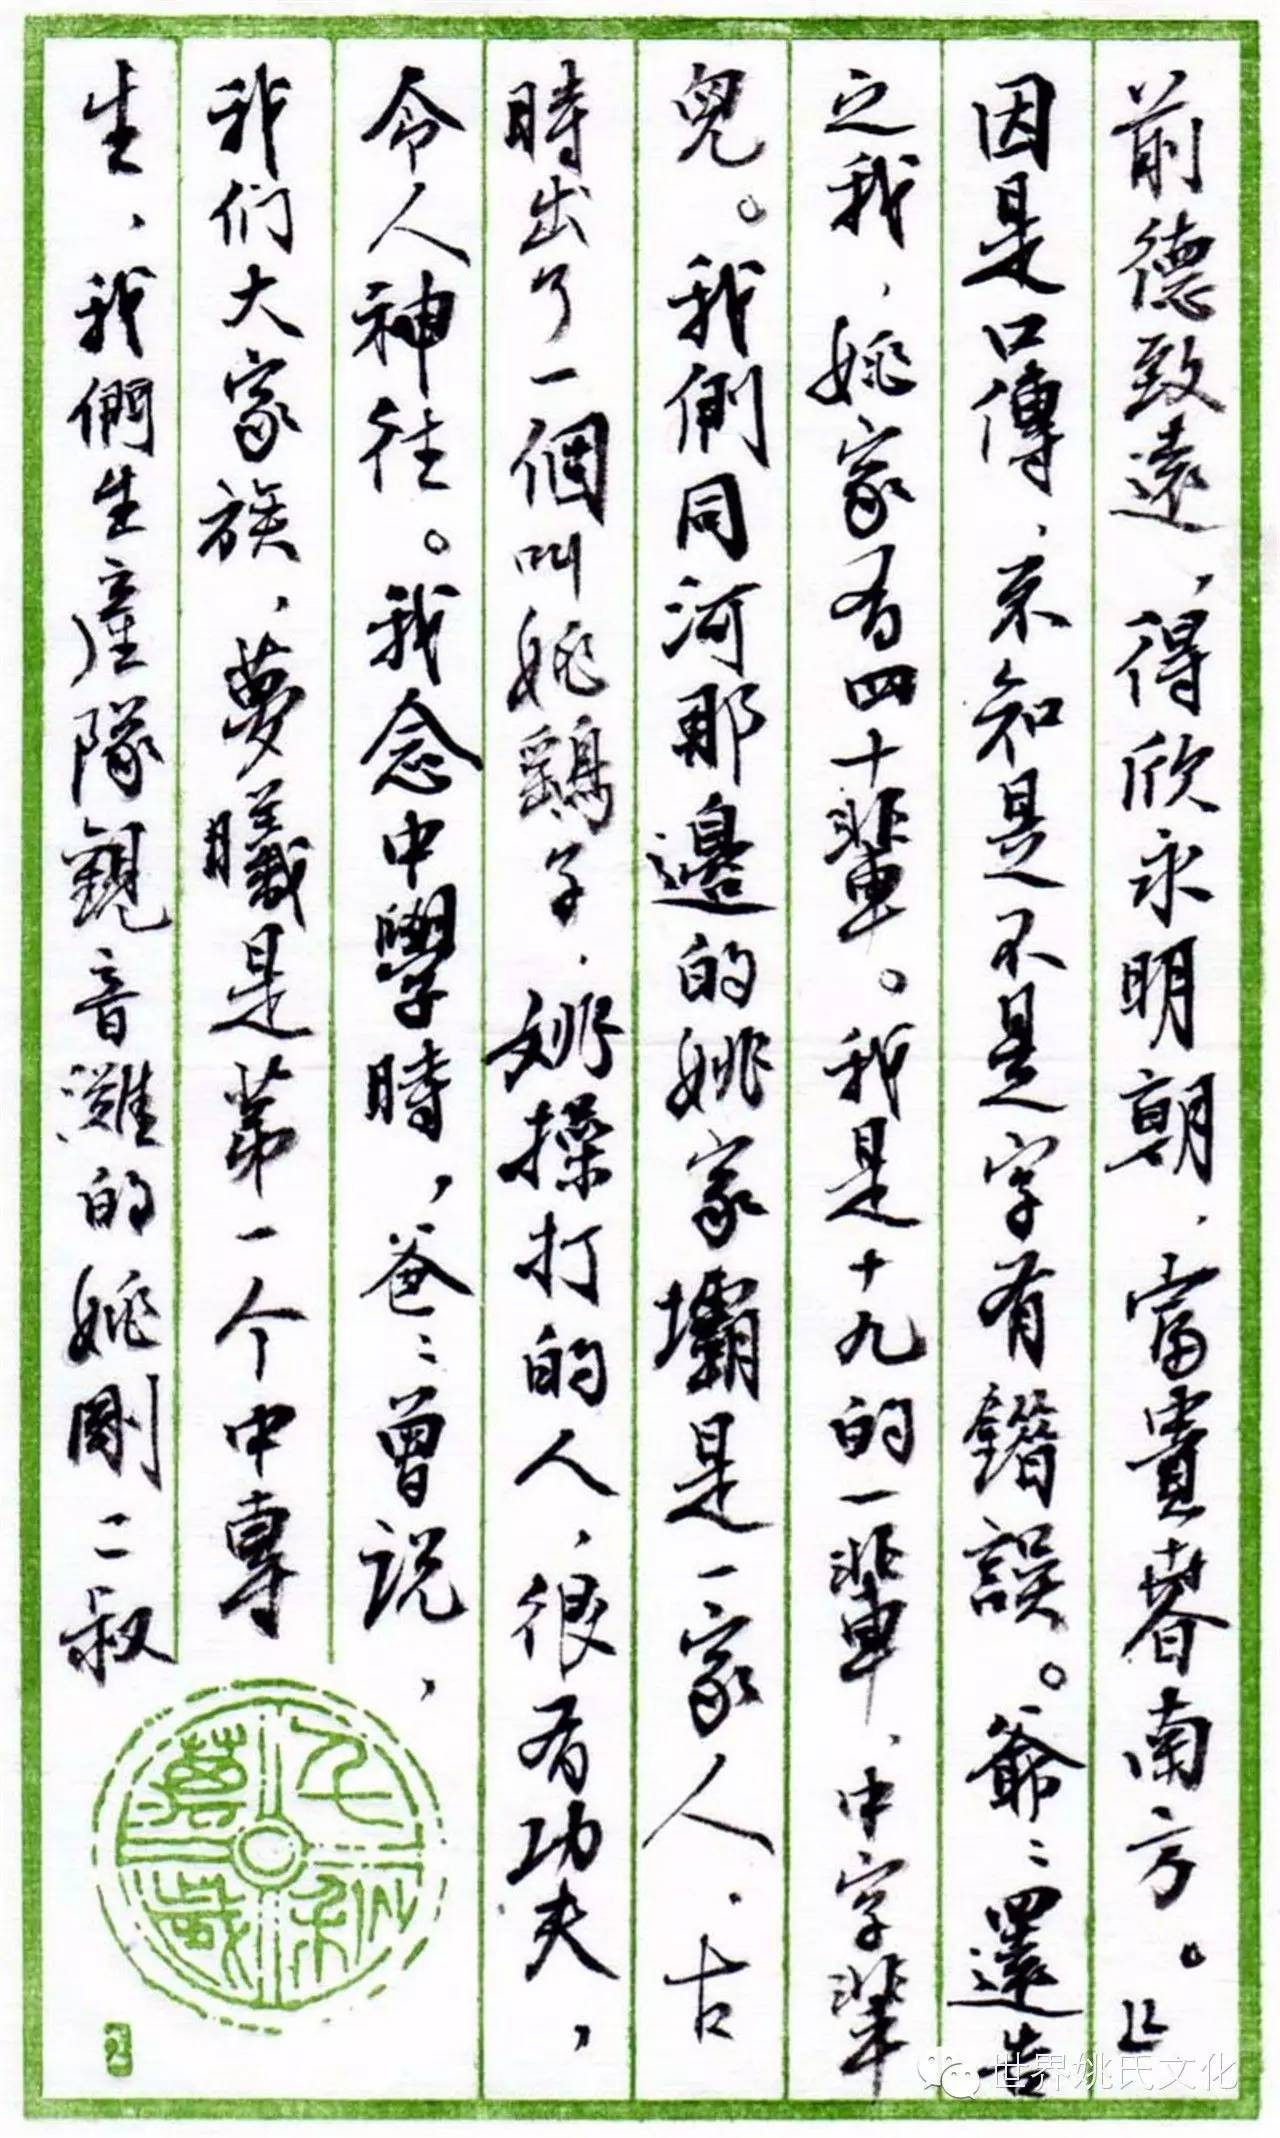 前德致遠，得欣永明朝，富貴春南方。」
因是口傳，不知是不是字有錯誤。爺：還告
之我，姚家有四十輩。我是十九的一輩，中字輩
兒。我們同河那邊的姚家壩是一家人，古
時出了一個叫姚鷂子，姚操打的人，很有功夫，
令人神往。我念中學時，爸：曾说，
我们大家族，夢曦是第一个中專
生，我們生產隊觀音灘的姚剛二叔
世界姚氏文化